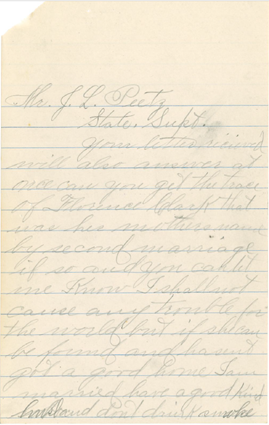 Mr. J. L. Peetz
State. Supt.
Your letter received
will also answer at
once can you get the trace
of Florence Clark that
was her mothers name
by second marriage
if so and you can let
me Know I shall not
cause any trouble for
the world but if she can
be found and hasn't
got a good home I am
married have a good kind
husband don't drink or smoke